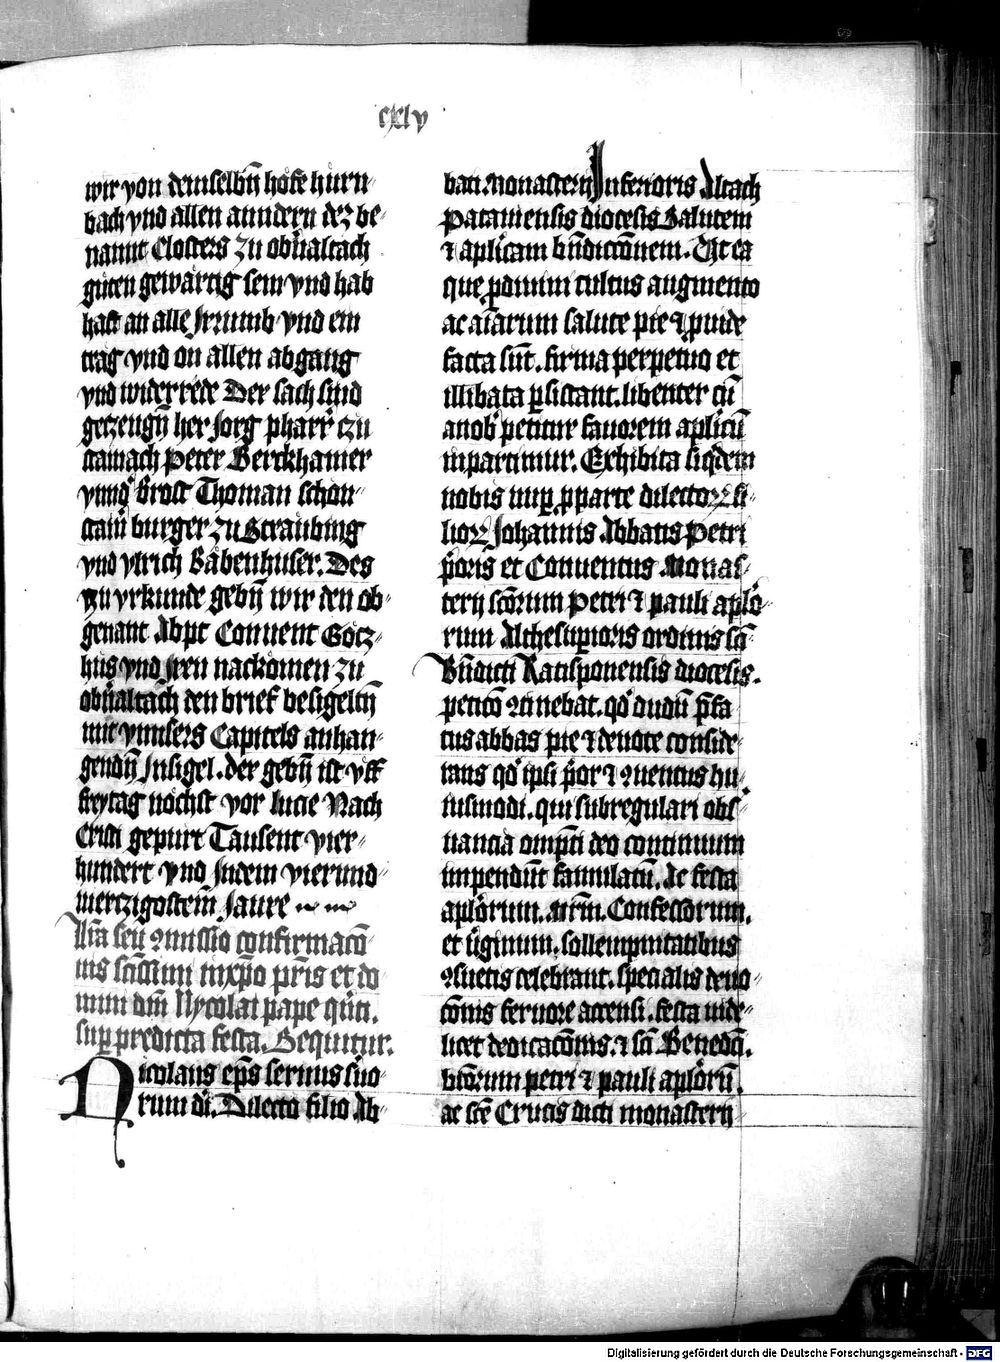 cxlv
wir von demselbn̄ hofe hürn
bach vnd allen anndern dez be
nannt Closters zu obn̄altach
güten gewärtig sein vnd hab
hafft an alle Irrumb vnd ein
trag vnd on allen abgang
vnd widerrede Der sach sind
getzeugn̄ her Jorg pharr̄ tzu
ainach Peter Berckhamer
vnnd Brost Thoman schon
stain burger zu Straubing
vnd vlrich Babenhuser. Des
zu vrkunde gebn̄ wir den ob
genant Abpt Conuent Gotz
hüs vnd Iren nackömen zu
obn̄altach den brief besigeltn̄
mit vnnsers Capitels anhan
gendn̄ Insigel. der gebn̄ ist vff
freytag nöchst vor lucie Nach
Cristi gepurt Tausent vier
hundert vnd Indem vierund
viertzigostem Jaure
lr̄a seu ꝯmissio confirmacō
nis sc̄ssimi inxpo pr̄is et do
mini dn̄i Nycolai pape qn̄ti.
suꝑ predicta festa. Sequitur.
Nicolaus ep̄s seruus suo
rum di. Dilecto filio Ab
bati Monasterij Inferioris Altach
Patauiensis diocesis Salutem
⁊ aplicam bn̄diccōnem. Vt ea
que ꝓ diuini cultus augmento
ac aīarum salute pie ⁊ ꝓuide
facta sūt. firma perpetuo et
illibata ꝑsistant. libenter cū
a nob̄ petitur fauorem aplicū
inpartimur. Exhibita siqdem
nobis nuꝑ ꝓ parte dilectoꝝ fi
lioꝝ Johannis Abbatis Petri
p̄oris et Conuentus Monas
terij sc̄orum Petri ⁊ pauli aplo
rum Althesuꝑioris ordinis sc̄i
Bn̄dicti Ratisponensis diocesis.
peticō ꝯtinebat. qo dudū p̄fa
tus abbas pie ⁊ deuote conside
rans qo ipsi p̄or ⁊ ꝯuentus hu
iusmodi. qui sub regulari obs
uancia omp̄ti deo continuum
impendūt famulatū. Ac festa
aplorum. Mr̄m. Confessorum.
et v̄ginum. sollempnitatibus
ꝯsuetis celebrant. specialis deuo
cōnis feruore accensi. festa vide
licet dedicacōnis. ⁊ sc̄i Benedc̄i.
btōrum petri ⁊ pauli aplorū.
ac sc̄e Crucis dicti monasterij
Digitalisierung gefördert durch die Deutsche Forschungsgemeinschaft - DFG